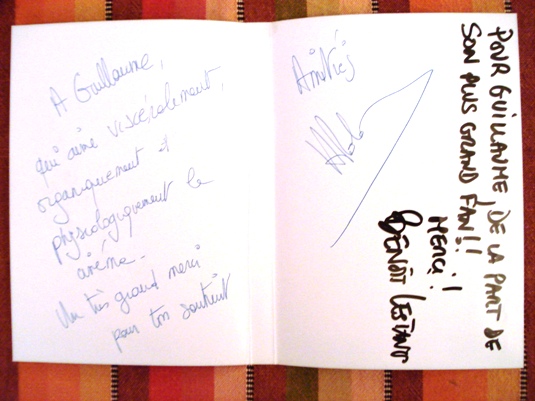 A Guillaume,
qui aime viscéralement,
organiquement et
physiologiquement le
cinéma.
Un très grand merci
pour ton soutien
Amitiés
POUR GUILLAUME, DE LA PART DE
SON PLUS GRAND FAN!!
MERCI!
BENOÎT LESTANT